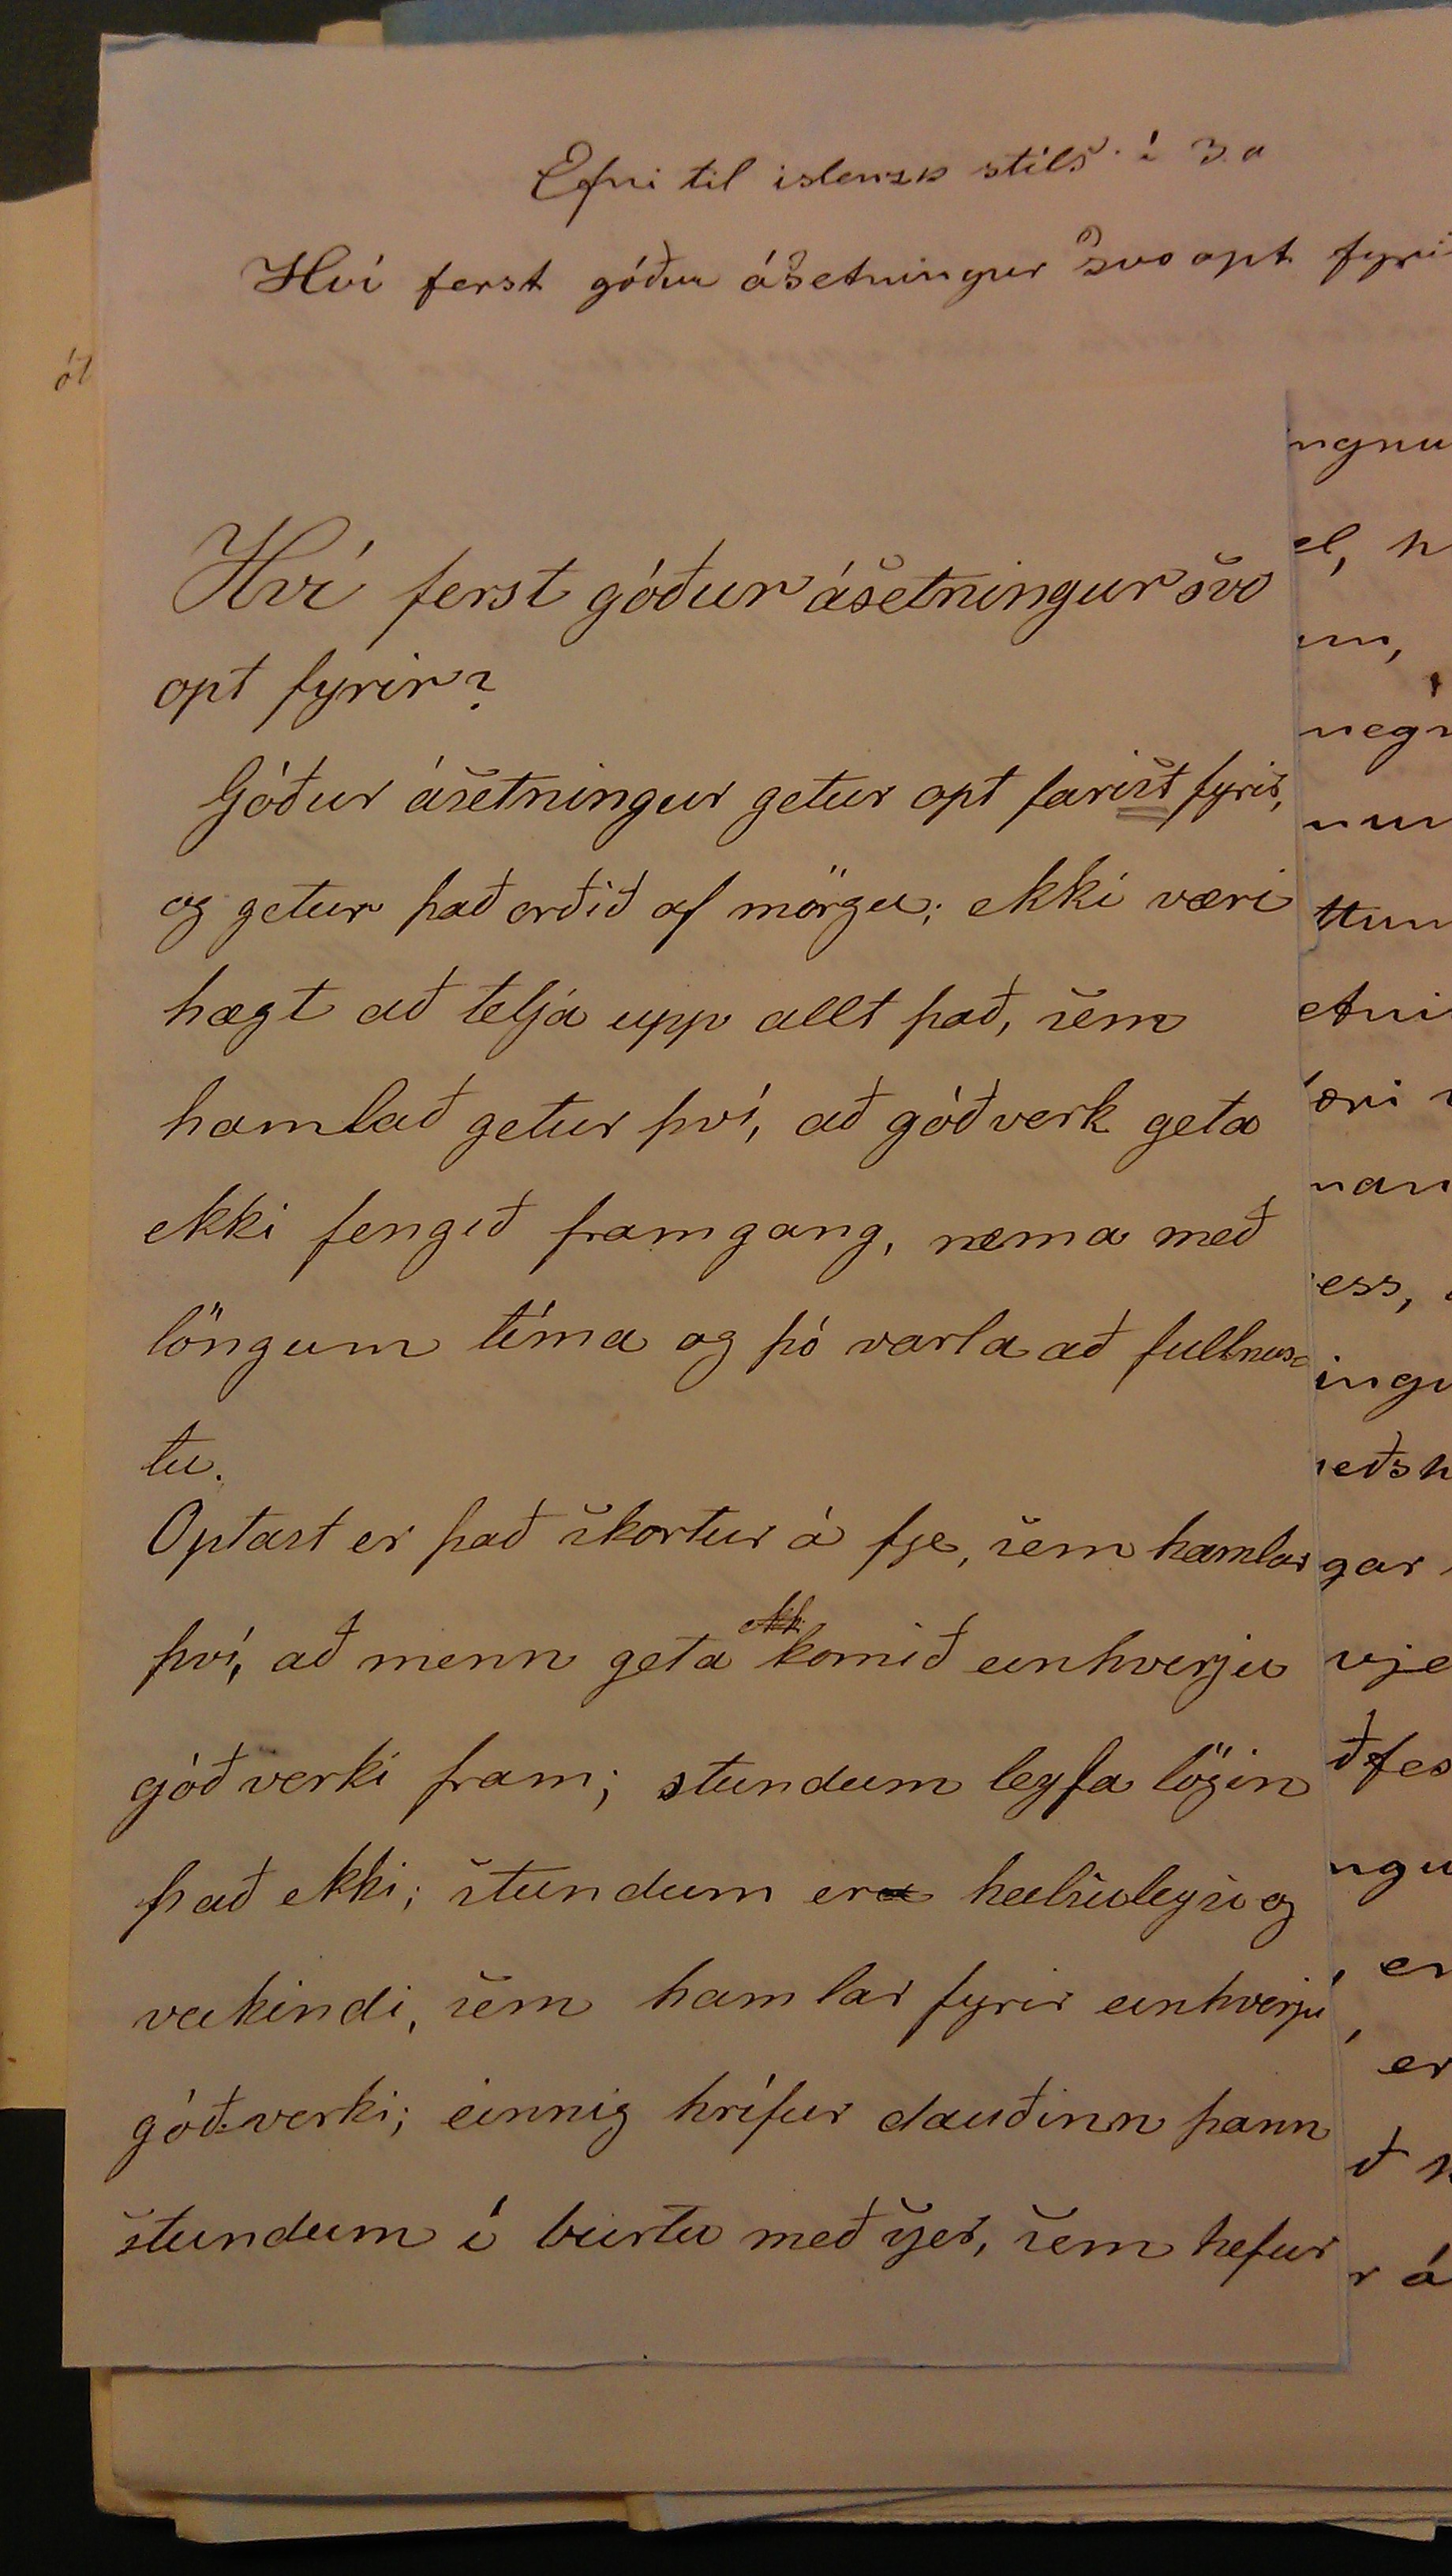 Efni til islenzk stíls í 3. a
Hví ferst góður ásetningur svo opt fyri
Hví ferst góður ásetningur svo
opt fyrir?
Góður ásetningur getur opt farist fyrir,
og getur það orðið af mörgu; ekki væri
hægt að telja upp allt það, sem
hamlað getur því, að góðverk geta
ekki fengið framgang, nema með
löngum tíma og þó varla að fullnus-
tu.
Optast er það skortur á fje, sem hamlar
því, að menn geta komið einhverju
góðverki fram; stundum leyfa lögin
það ekki; stundum er heilsuleysi og
veikindi, sem hamlar fyrir einhverju
góðverki; einnig hrífur dauðinn þann
stundum í burtu með sjer, sem hefur